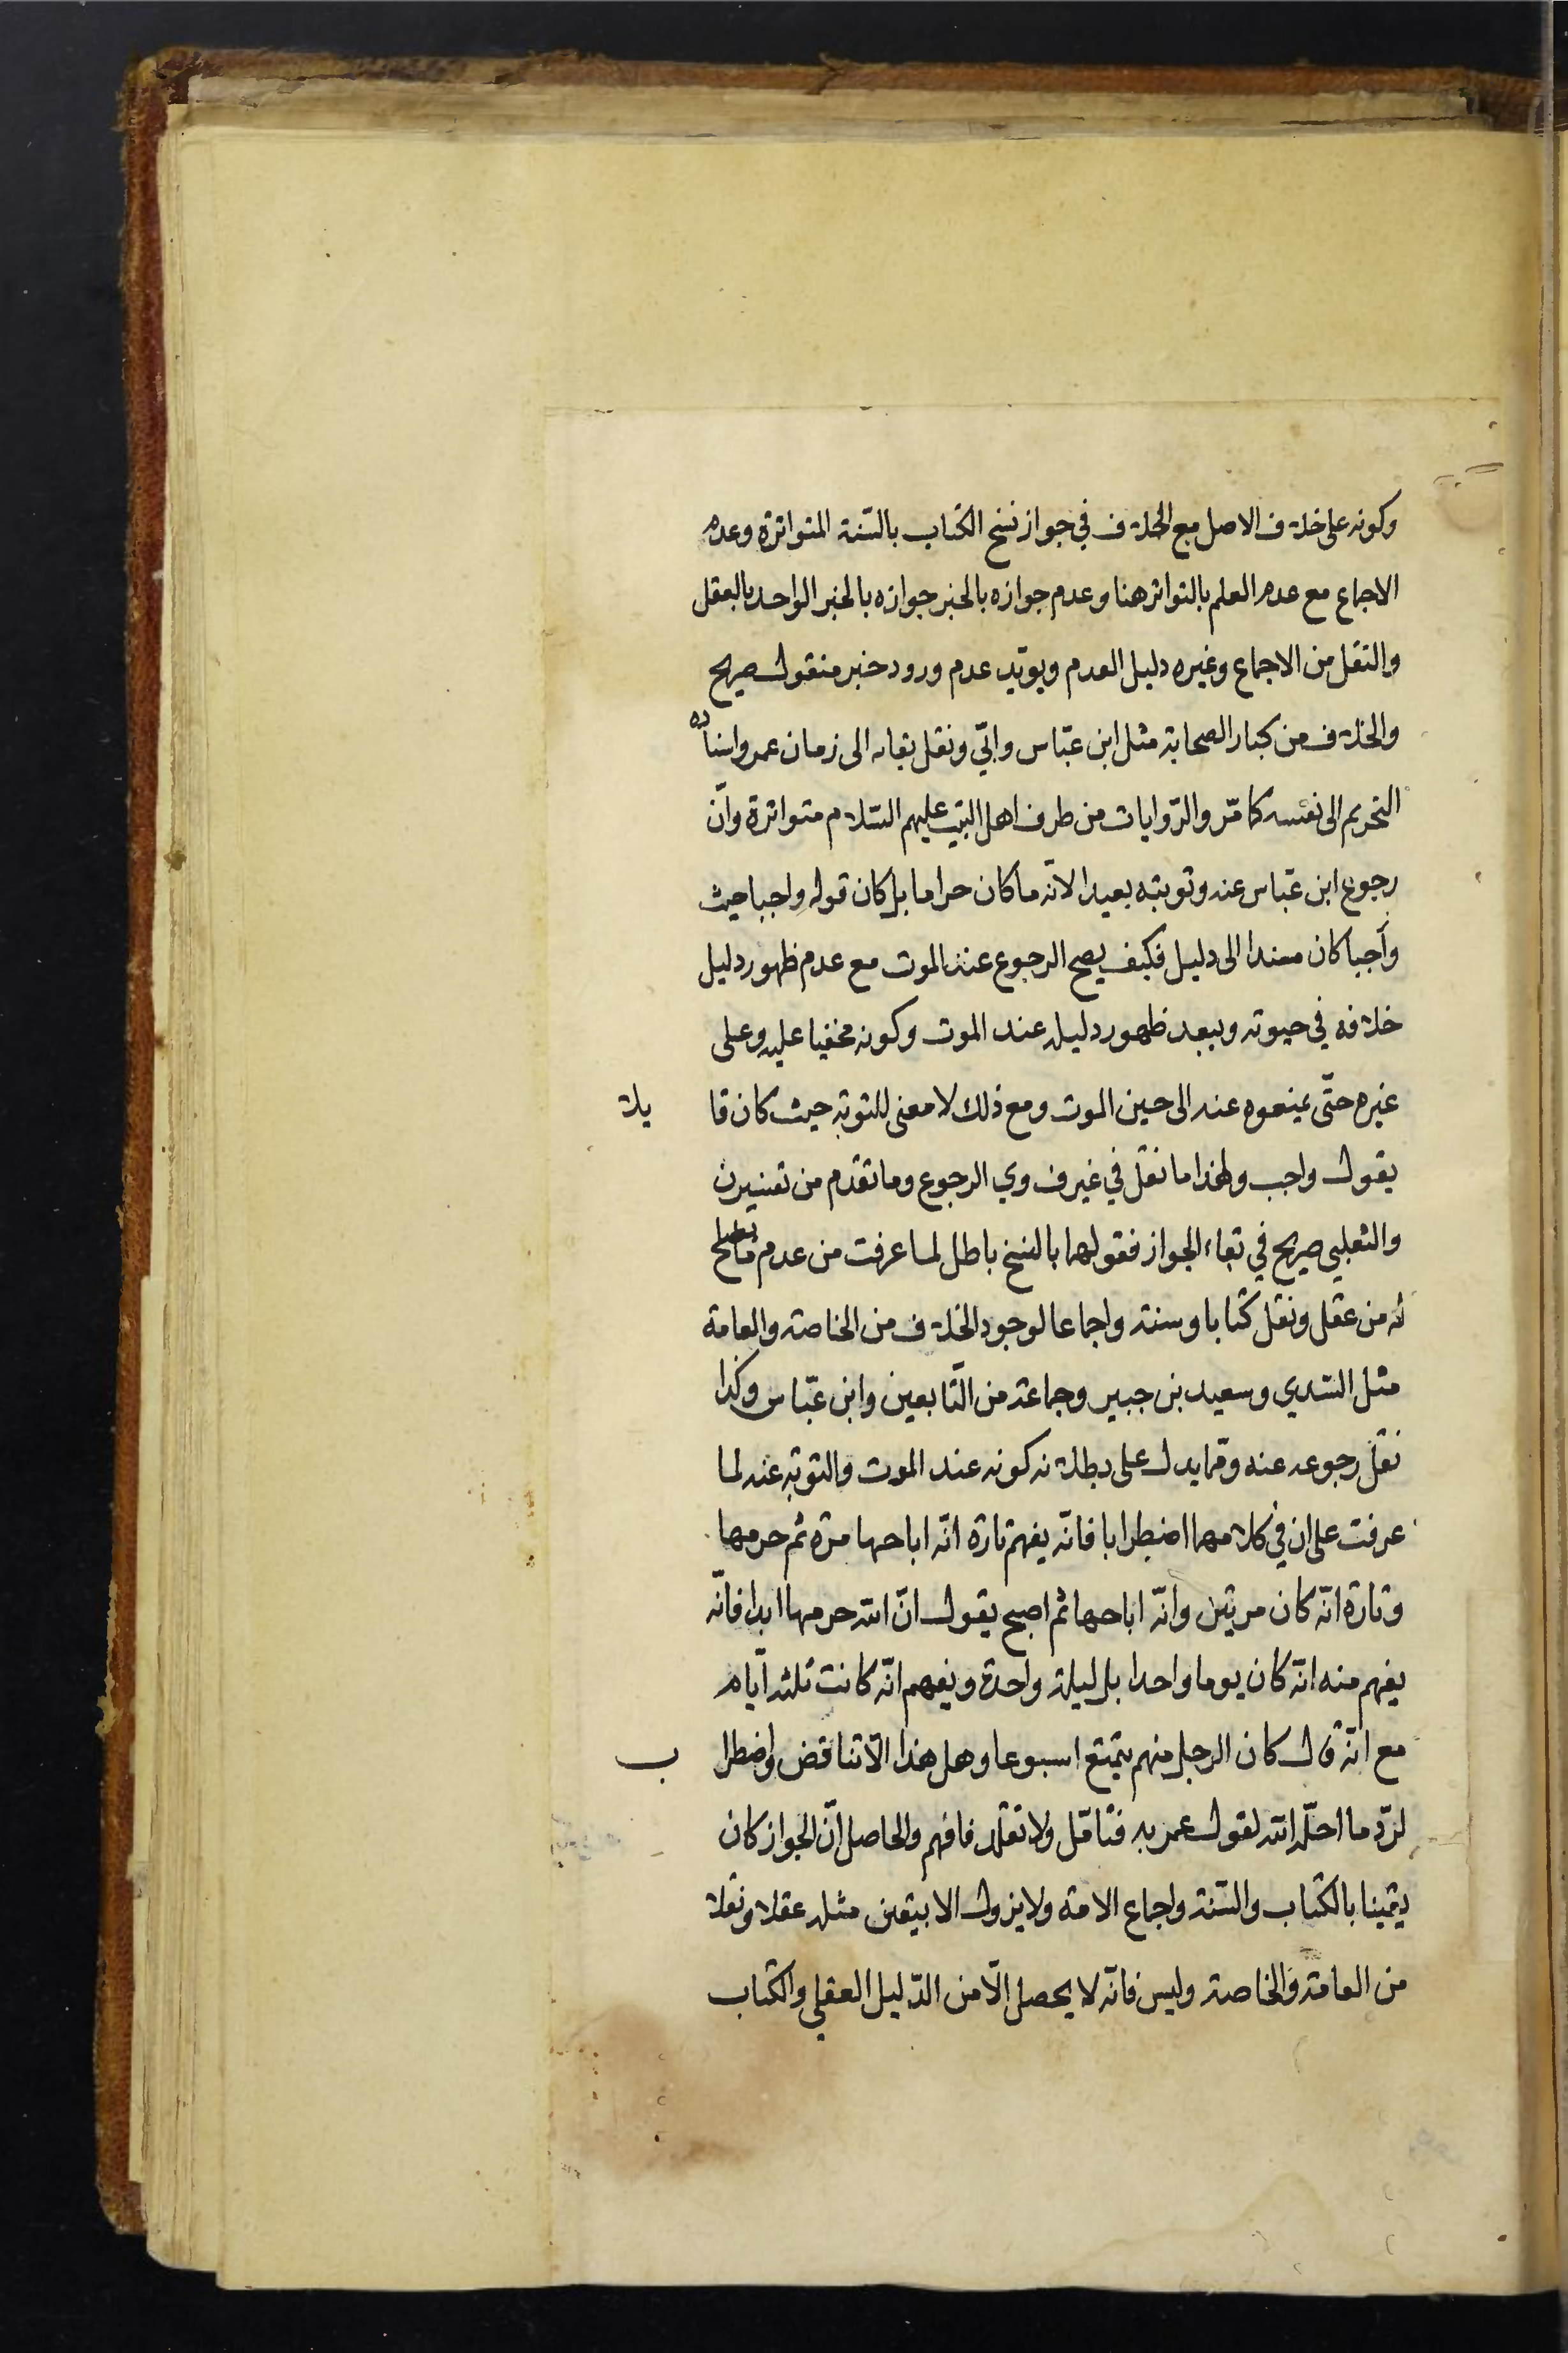 وكونه على خلاف الاصل مع الخلاف في جواز نسخ الكتاب بالسّنة المتواترة وعدم
الاجماع مع عدم العلم بالتواتر هنا وعدم جوازه بالخبر جوازه بالخبر الواحد بالعقل
والنقل من الاجماع وغيره دليل العدم ويؤيّد عدم ورود خبر منقول صريح
والخلاف من كبار الصحابة مثل ابن عبّاس وابيّ ونقل بقائه الى زمان عمر واسناده
التحريم الى نفسه كما مّر والرّوايات من طرف اهل البيت عليهم السّلام متواترة وانّ
رجوع ابن عبّاس عنه وتوبته بعيد الانّه ما كان حراما بل كان قوله واجبا حيث
واجبا كان مسندا الى دليل فكيف يصح الرجوع عند الموت مع عدم ظهور دليل
خلافه في حيوته ويبعد ظهور دليله عند الموت وكونه مخفيا عليه وعلى
غيره حتّى يمنعوه عنه الى حين الموت ومع ذلك لا معنى للتوبة حيث كان قايلا
بقول واجب ولهذا ما نقل في غير ف وي الرجوع وما تقدم من تفسيرن
والثعلبي صريح في بقاء الجواز فقولهما بالنسخ باطل لما عرفت من عدم ما يصلح
له من عقل ونقل كتابا وسنة واجماعا لوجود الخلاف من الخاصة والعامة
مثل السّدي وسعيد بن جبير وجماعة من التّابعين وابن عبّاس وكذا
نقل رجوعه عنه وممّا يدل على بطلانه كونه عند الموت والتوبة عنه لما
عرفت على ان في كلامهما اضطرابا فانّه يفهم تارة انّه اباحها مرة ثم حرمها
وتارة انّه كان مرتين وانّه اباحها ثم اصبح يقول انّ الله حرمها ابدا فانّه
يفهم منه انّه كان يوما واحدا بل ليلة واحدة ويفهم انّه كانت ثلثة ايّام
مع انّه قال كان الرجل منهم يتمتع اسبوعا وهل هذا الّا تناقض واضطراب
لردّ ما احلّه الله لقول عمر به فتامّل ولا تقلّد فافهم والحاصل انّ الجواز كان
يقينا بالكتاب والسّنة واجماع الامة ولا يزول الا بيقين مثله عقلا ونقلا
من العامة والخاصة وليس فانّه لا يحصل الّا من الدّليل العقلي والكتاب